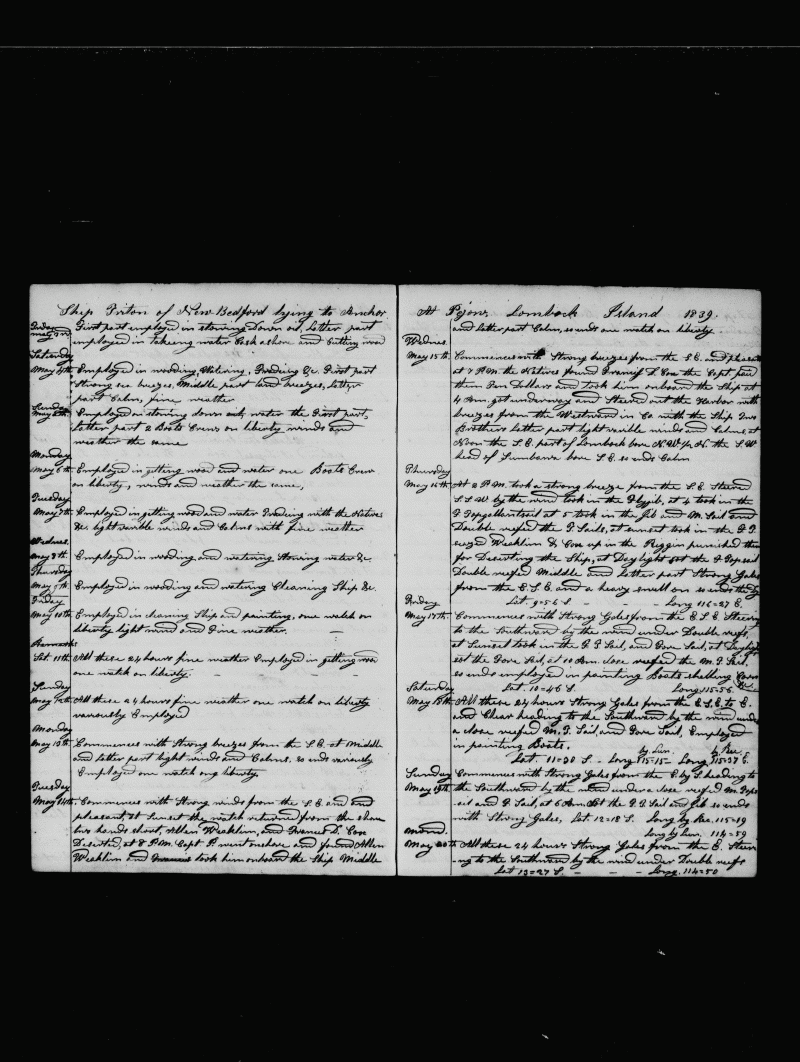 Ship Triton of New Bedford lying to Anchor
Friday First part employed in stowing Down oil, Latter part
May 3rd employed in takeing water Cask ashore and Cutting wood
Saturday
May 4th Employed in wooding, Watering, Tradeing &c. First part
Strong sea breezes, Middle part land breezes, Latter
part Calm, fine weather
Sunday
May 5th Employed in stowing down water the First part,
Latter part 2 Boats Crews on liberty winds and
weather the same
Monday
May 6th Employed in getting wood and water one Boats Crew
on liberty, winds and weather the same,
Tuesday
May 7th Employed in getting wood and water Tradeing with the Natives
&c light varible winds and Calms with fine weather
Wednes.
May 8th Employed in wooding and watering Stowing water &c.
Thursday
May 9th Employed in wooding and watering Cleaning Ship &c.
Friday
May 10th Employed in cleaning Ship and painting, one watch on
liberty light wind and Fine weather.
Remarks
Sat. 11th All these 24 hours fine weather Employed in getting wood
one watch on liberty.
Sunday
May 12th All these 24 hours fine weather one watch on liberty
variously Employed
Monday
May 13th Commences with Strong breezes from the S.E. at Middle
and latter part light winds and Calms. so ends variously
Employed one watch on liberty.
Tuesday
May 14th Commences with Strong winds from the S.E. and
pleasant, at Sunset the watch returned from the shore
two hands short, Allen Weeklin, and Francis D. Cox
Deserted, at 8 P.M. Capt P. went onshore and found Allen
Weeklin and took him onboard the Ship Middle
At Lomback Island 1839.
and latter part Calm, so ends one watch on liberty.
Wednes.
May 15th Commences with Strong breezes from the S.E. and pleasant
at 7 P.M. the Natives found Francis D. Cox the Capt paid
them Ten Dollars and took him onboard the Ship at
4 A.m. got underway and Steered out the Harbor with
breezes from the Westward in Co. with the Ship Two
Brothers Latter part light varible winds and Calms, at
Noon the S.E. part of Lomback bore N.W by N. the S.W
head of Sumbawa bore S.E. so ends Calm
Thursday
May 16th At 2 P.M. took a strong breeze from the S.E. Steered
S.S.W by the wind took in the Flyjib, at 4 took in the
F Topgallentsail at 5 took in the Jib and M. Sail and
Double reefed the T. Sails, at sunset took in the F. T.
seized Weeklin & Cox up in the Riggin punished them
for Deserting the Ship, at Daylight set the F. Topsail
Double reefed Middle and Latter part Strong Gales
from the E.S.E. and a heavy swell on so ends
Lat. 9=56 S - - - Long 116=27 E.
Friday
May 17th Commences with Strong Gales from the E.S.E Steering
to the Southward by the wind under Double reefs,
at Sunset took in the F.T Sail, and Fore Sail, at Daylight
set the Fore Sail, at 10 A.m. close reefed the M.T. Sail,
so ends employed in painting Boats shelling Corn
Lat. 10=46 S. Long. 115=56. &c.
Saturday
May 18th All these 24 hours Strong Gales from the E.S.E. to E.
and Clear heading to the Southward by the wind under
a close reefed M.T. Sail, and Fore Sail, Employed
in painting Boats. by Lun. by Rec.
Lat. 11=30 S - Long 115=15 - Long 115=37 E.
Sunday Commences with Strong Gales from the E by S. heading to
May 19th the Southward by the wind under a close reefed M. Tops
ail and F. Sail, at 6 A.m. Set the F.T Sail and Jib so ends
with Strong Gales, Lat. 12=18 S. Long by Rec. 115=19
Long by Lun. 114=59
Mond.
May 20th All these 24 hours Strong Gales from the E. Steeri
ng to the Southward by the wind under Double reefs
Lat 13=27 S. - - - Long. 114=50